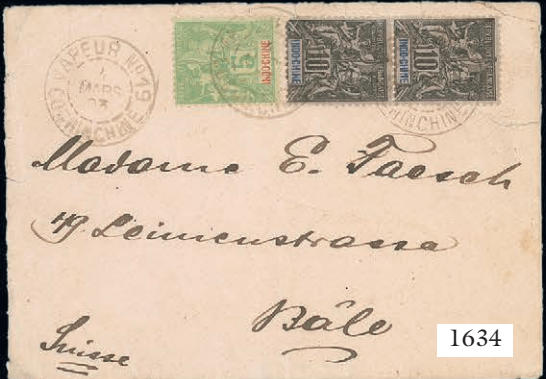 VAPEUR No 19
4
MARS
03
COCHINCHINE
5
INDOCHINE
10
INDOCHINE
10
INDOCHINE
Madame E. Faesch
49 Leimenstrassa
Bâle
Suisse
1634